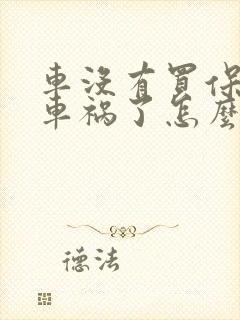 車沒有買保
車禍了怎麼
德法